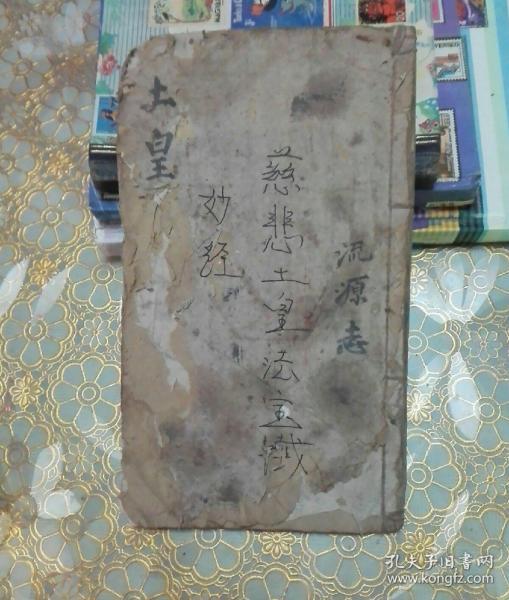 流源志
慈悲土皇法宝懺
妙经
土皇
孔夫子旧书网
www.kongfz.com